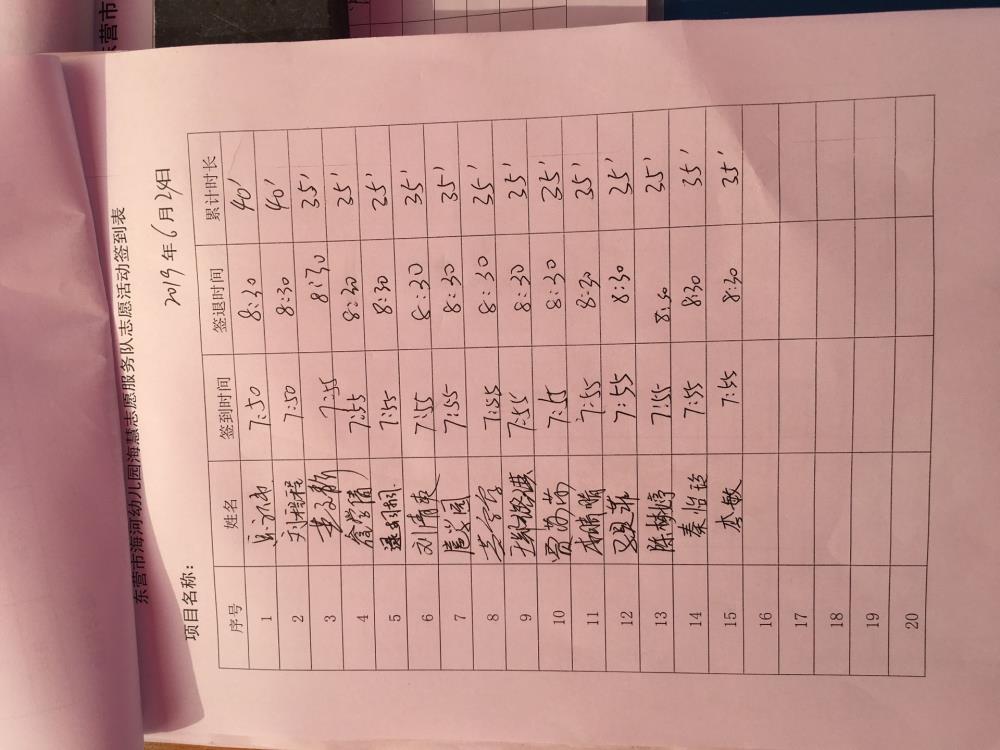 东营市海河幼儿园海慧志愿服务队志愿活动签到表
2019年6月24日
项目名称:
序号 姓名 签到时间 签退时间 累计时长
1 7:50 8:30 40'
2 刘程程 7:50 8:30 40'
3 7:55 8:30 35'
4 徐学倩 7:55 8:30 35'
5 7:55 8:30 35'
6 刘倩爽 7:55 8:30 35'
7 7:55 8:30 35'
8 7:55 8:30 35'
9 7:55 8:30 35'
10 贾芳芳 7:55 8:30 35'
11 7:55 8:30 35'
12 7:55 8:30 35'
13 陈婷婷 7:55 8:30 35'
14 秦怡铭 7:55 8:30 35'
15 李敏 7:55 8:30 35'
16
17
18
19
20
东营市